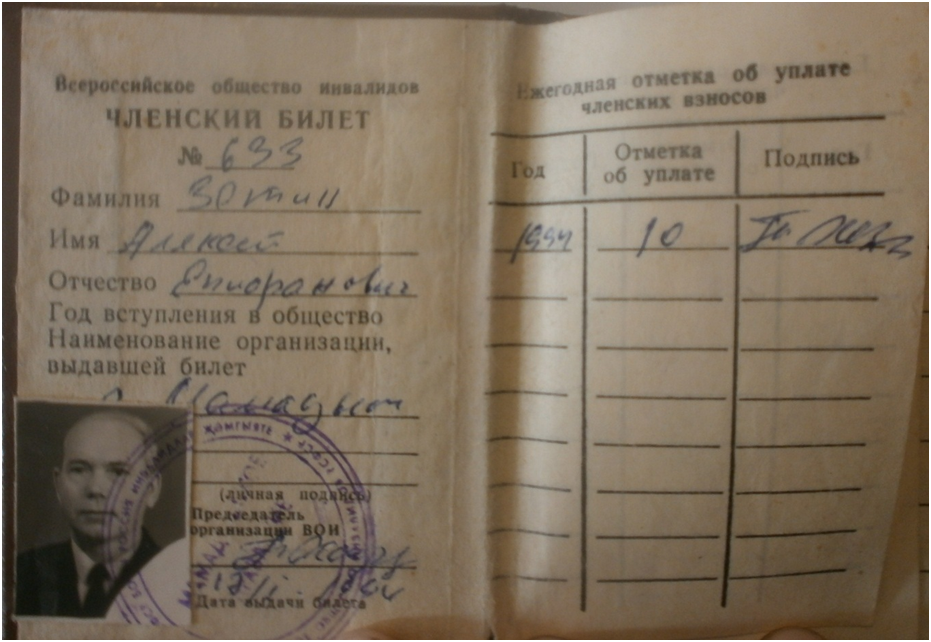 Всероссийское общество инвалидов
ЧЛЕНСКИЙ БИЛЕТ
№ 633
Фамилия Зотин
Имя Алексей
Отчество
Год вступления в общество
Наименование организации,
выдавшей билет
(личная подпись)
Председатель
организации ВОИ
Дата выдачи билета
Ежегодная отметка об уплате
членских взносов
Год
Отметка
об уплате
Подпись
1994 10